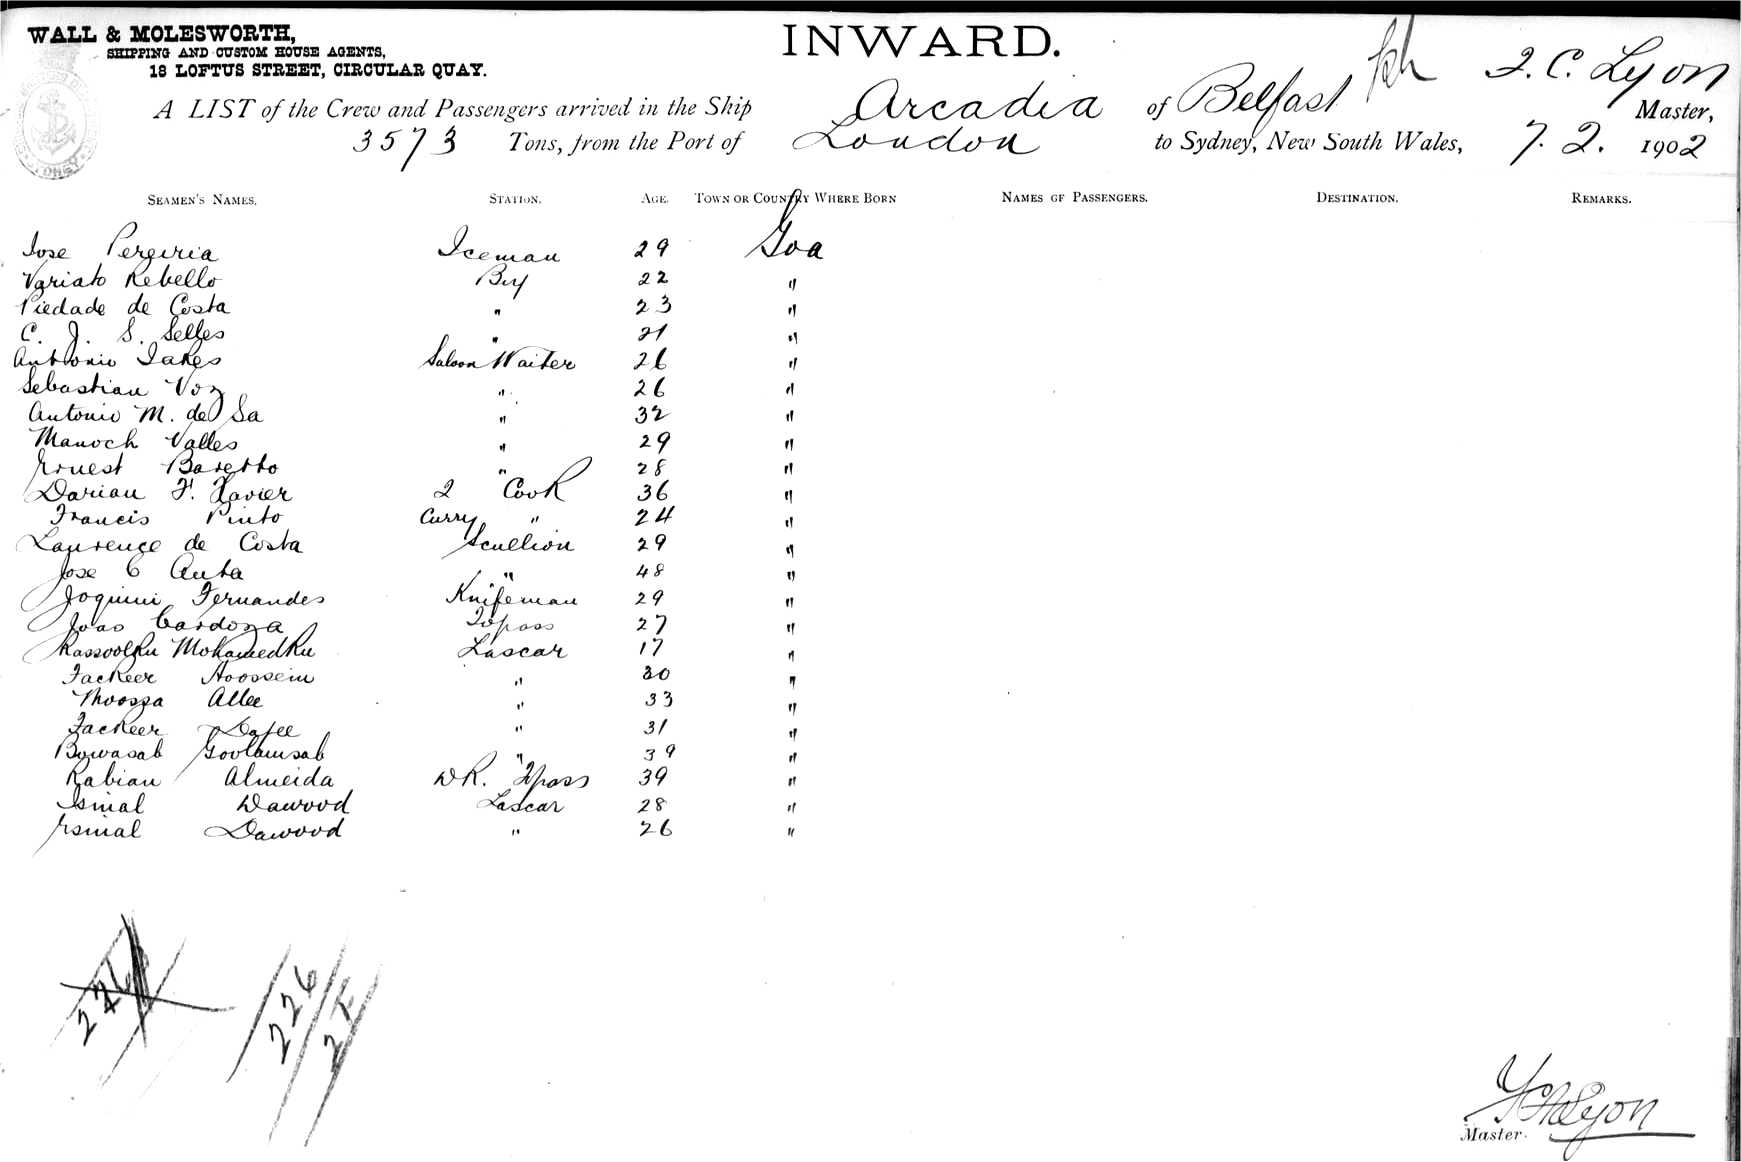 WALL & MOLESWORTH,
SHIPPING AND CUSTOM HOUSE AGENTS,
18 LOFTUS STREET, CIRCULAR QUAY.
INWARD.
A LIST of the Crew and Passengers arrived in the Ship Arcadia of Belfast J. C. Lyon Master,
3573 Tons, from the Port of London to Sydney, New South Wales, 7. 2. 1902
SEAMEN'S NAMES. STATION. AGE. TOWN OR COUNTRY WHERE BORN NAMES OF PASSENGERS. DESTINATION. REMARKS.
Jose Pereiria Iceman 29 Goa
Variato Rebello Boy 22 "
Piedade de Costa " 23 "
C. J. S. Selles " 21 "
Antonio Saloon Waiter 26 "
Sebastian Voz " 26 "
Antonio M. de Sa " 32 "
Manoch Valles " 29 "
Ernest Baretto " 28 "
Darian F. Xavier 2 Cook 36 "
Francis Pinto Curry " 24 "
Laurence de Costa Scullion 29 "
Jose C Auta " 48 "
Joquini Fernandes Knifeman 29 "
Joao Cardoza Topass 27 "
Rassoolku Mohamedku Lascar 17 "
Fackeer Hoossein " 30 "
Moossa Allee " 33 "
Fackeer " 31 "
Bowasab Goolamsab " 39 "
Rabian Almeida WR. Topass 39 "
Esmal Dawood Lascar 28 "
Esmal Dawood " 26 "
226
226
27
Lyon
Master.